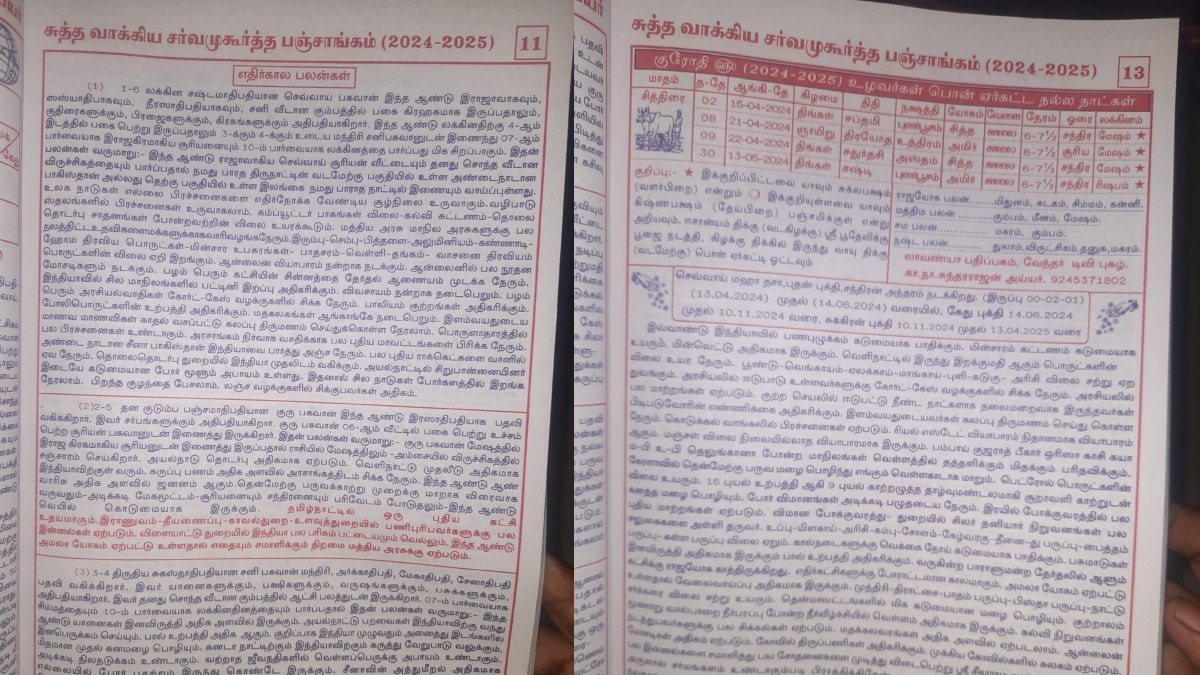 சுத்த வாக்கிய சர்வமுகூர்த்த பஞ்சாங்கம் (2024-2025) 11
எதிர்கால பலன்கள்
(1) 1-6 லக்கின சஷ்டமாதிபதியான செவ்வாய் பகவான் இந்த ஆண்டு இராஜாவாகவும்,
ஸஸ்யாதிபாகவும், நீரஸாதிபதியாகவும், சனி வீடான கும்பத்தில் பகை கிரஹமாக இருப்பதாலும்,
குதிரைகளுக்கும், பிரஜைகளுக்கும், கிரகங்களுக்கும் அதிபதியாகிறார். இந்த ஆண்டு லக்கினதிற்கு 4-ஆம்
இடத்தில் பகை பெற்று இருப்பதாலும் 3-க்கும் 4-க்கும் உடைய மந்திரி சனிபகவானுடன் இணைந்து 07-ஆம்
பார்வையாக இராஜகிரமாகிய சூரியனையும் 10-ம் பார்வையாக லக்கினத்தை பார்ப்பது மிக சிறப்பாகும். இதன்
பலன்கள் வருமாறு:- இந்த ஆண்டு ராஜாவாகிய செவ்வாய் சூரியன் வீட்டையும் தனது சொந்த வீடான
விருச்சிகத்தையும் பார்ப்பதால் நமது பாரத திருநாட்டின் வடமேற்கு பகுதியில் உள்ள அண்டைநாடான
பாகிஸ்தான் அல்லது தெற்கு பகுதியில் உள்ள இலங்கை நமது பாரத நாட்டில் இணையும் வாய்ப்புள்ளது.
உலக நாடுகள் எல்லை பிரச்சனைகளை எதிர்நோக்க வேண்டிய சூழ்நிலை உருவாகும்.வழிபாட்டு
ஸ்தலங்களில் பிரச்சனைகள் உருவாகலாம். கம்ப்யூட்டர் பாகங்கள் விலை-கல்வி கட்டணம்-தொலை
தொடர்பு சாதனங்கள் போன்றவற்றின் விலை உயரக்கூடும். மத்திய அரசு மாநில அரசுகளுக்கு பல
நலத்திட்டஉதவிகளைமக்களுக்காகவாரிவழங்கநேரும்.இரும்பு-செம்பு-பித்தளை-அலுமினியம்-கண்ணாடி-
ஹோம திரவிய பொருட்கள்-மின்சார உபகரங்கள்- பாதசரம்-வெள்ளி-தங்கம்- வாசனை திரவியம்
பொருட்களின் விலை ஏறி இறங்கும். ஆன்லைன் வியாபாரம் நன்றாக நடக்கும். ஆன்லைனில் பல நூதன
மோசடிகளும் நடக்கும். பழம் பெரும் கட்சியின் சின்னத்தை தேர்தல் ஆணையம் முடக்க நேரும்.
இந்தியாவில் சில மாநிலங்களில் பட்டினி இறப்பு அதிகரிக்கும். விவசாயம் நன்றாக நடைபெறும். பழம்
பெரும் அரசியல்வாதிகள் கோர்ட்-கேஸ் வழக்குகளில் சிக்க நேரும். பாலியம் குற்றங்கள் அதிகரிக்கும்.
போலிபொருட்களின் உற்பத்தி அதிகரிக்கும். மதகலகங்கள் ஆங்காங்கே நடைபெறும். இளம்வயதுடைய
மாணவ மாணவிகள் காதல் வசப்பட்டு கலப்பு திருமணம் செய்துகொள்ள நேரலாம். பொருளாதாரத்தில்
பல பிரச்சனைகள் உண்டாகும். அரசாங்கம் நிர்வாக வசதிக்காக பல புதிய மாவட்டங்கள் பிரிக்க நேரும்.
அண்டை நாடான சீனா பாகிஸ்தான் இந்தியாவை பார்த்து அஞ்ச நேரும். பல புதிய ராக்கெட்களை வானில்
ஏவ நேரும். தொலைதொடர்பு துறையில் இந்தியா முதலிடம் வகிக்கும். அயல்நாட்டில் சிறுபான்மையினர்
இடையே கடுமையான போர் மூளும் அபாயம் உள்ளது. இதனால் சில நாடுகள் போர்களத்தில் இறங்க
நேரலாம். பிறந்த குழந்தை பேசலாம். லஞ்ச வழக்குகளில் சிக்குபவர்கள் அதிகம்.
(2)2-5 தன குடும்ப பஞ்சமாதிபதியான குரு பகவான் இந்த ஆண்டு இரஸாதிபதியாக பதவி
வகிக்கிறார். இவர் சர்பங்களுக்கும் அதிபதியாகிறார். குரு பகவான் 06-ஆம் வீட்டில் பகை பெற்று உச்சம்
பெற்ற சூரியன் பகவானுடன் இணைத்து இருக்கிறார். இதன் பலன்கள் வருமாறு:- குரு பகவான் மேஷத்தில்
இராஜ கிரகமாகிய சூரியனுடன் இணைத்து இருப்பதால் ராசியில் மேஷத்திலும் -அம்சையில் விருச்சிகத்தில்
சஞ்சாரம் செய்கிறார். அயல்நாடு தொடர்பு அதிகமாக ஏற்படும். வெளிநாட்டு முதலீடு அதிகமாக
இந்தியாவிற்குள் வரும். கருப்பு பணம் அதிக அளவில் அரசாங்கத்திடம் சிக்க நேரும். இந்த ஆண்டு ஆண்
வாரிசு அதிக அளவில் ஜனனம் ஆகும்.தென்மேற்கு பருவக்காற்று முறைக்கு மாறாக விரைவாக
வருவதும்-அடிக்கடி மேகமூட்டம்-சூரியனையும் சந்திரனையும் பரிவேடம் போடுதலும்-இந்த ஆண்டு
வெயில் கொடுமையாக இருக்கும். தமிழ்நாட்டில் ஒரு புதிய கட்சி
உதயமாகும்.இராணுவம்-தீயணைப்பு-காவல்துறை-உளவுத்துறையில் பணிபுரிபவர்களுக்கு பல
இன்னல்கள் ஏற்படும். விளையாட்டு துறையில் இந்தியா பல பரிசும் பட்டையமும் வெல்லும். இந்த ஆண்டு
அமலா யோகம் ஏற்பட்டு உள்ளதால் எதையும் சமாளிக்கும் திறமை மத்திய அரசுக்கு ஏற்படும்.
(3) 3-4 திருதிய சுகஸ்தாதிபதியான சனி பகவான் மந்திரி, அர்க்காதிபதி, மேகாதிபதி, சேனாதிபதி
பதவி வகிக்கிறார். இவர் யானைகளுக்கும், பக்ஷிகளுக்கும், வருஷங்களுக்கும், பசுக்களுக்கும்,
அதிபதியாகிறார். இவர் தனது சொந்த வீடான கும்பத்தில் ஆட்சி பலத்துடன் இருக்கிறார். 07-ம் பார்வையாக
சிம்மத்தையும் 10-ம் பார்வையாக லக்கினதினத்தையும் பார்ப்பதால் இதன் பலன்கள் வருமாறு:- இந்த
ஆண்டு யானைகள் இனவிருத்தி அதிக அளவில் இருக்கும். அயல்நாட்டு பறவைகள் இந்தியாவிற்கு வந்து
இனபெருக்கம் செய்யும். பால் உற்பத்தி அதிக ஆகும். குறிப்பாக இந்தியா முழுவதும் அனைத்து இடங்களிலும்
மிதமான முதல் கனமழை பொழியும். கனடா நாட்டிற்கும் இந்தியாவிற்கும் கருத்து வேறுபாடு வலுக்கும்.
அடிக்கடி நிலநடுக்கம் உண்டாகும். வற்றாத ஜீவநதிகளில் வெள்ளப்பெருக்கு அபாயம் உண்டாகும்.
எல்லையில் போர் பதற்றம் இருந்து கொண்டே இருக்கும். சீனாவின் அத்துமீறல் அதிகமாக
சுத்த வாக்கிய சர்வமுகூர்த்த பஞ்சாங்கம் (2024-2025) 13
குரோதி ௵ (2024-2025) உழவர்கள் பொன் ஏர்கட்ட நல்ல நாட்கள்
மாதம் த-தே ஆங்கி-தே கிழமை திதி நக்ஷத்ரி யோகம் வேளை நேரம் ஓரை லக்கினம்
சித்திரை 02 15-04-2024 திங்கள் சப்தமி புனர்பூசம் சித்த காலை 6-7½ சந்திர மேஷம் ★
08 21-04-2024 ஞாயிறு திரயோத உத்திரம் அமிர் காலை 6-7½ சூரிய மேஷம் ★
09 22-04-2024 திங்கள் சதுர்தசி அஸ்தம் சித்த காலை 6-7½ சந்திர மேஷம் ★
30 13-05-2024 திங்கள் சஷ்டி புனர்பூசம் அமிர் காலை 6-7½ சந்திர ரிஷபம் ★
குறிப்பு:- ★ இக்குறிப்பிட்டவை யாவும் சுக்லபக்ஷம்
(வளர்பிறை) என்றும் ❍ இக்குறியுள்ளவை யாவும்
கிஷ்ணபக்ஷம் (தேய்பிறை) பஞ்சமிக்குள் என்று
அறியவும். ஈசான்யம் திக்கு (வடகிழக்கு) ஸ்ரீ பூதேவிக்கு
பூஜை நடத்தி, கிழக்கு திக்கில் இருந்து வாயு திக்கு
(வடமேற்கு) பொன் ஏர்கட்டி ஓட்டவும்
ராஜயோக பலன்........மிதுனம், கடகம், சிம்மம், கன்னி.
மத்திம பலன் ..........கும்பம், மீனம், மேஷம்.
சம பலன ................. மகரம், கும்பம்.
நஷ்ட பலன...............துலாம்,விருட்சிகம்,தனுசு,மகரம்.
லாவண்யா பதிப்பகம், வேந்தர் டிவி புகழ்.
கா.நா.சுந்தரராஜன் அய்யர். 9245371802
செவ்வாய் மஹா தசா,புதன் புக்தி,சந்திரன் அந்தரம் நடக்கிறது. (இருப்பு 00-02-01)
(13.04.2024) முதல் (14.06.2024) வரையில், கேது புக்தி 14.06.2024
முதல் 10.11.2024 வரை, சுக்கிரன் புக்தி 10.11.2024 முதல் 13.04.2025 வரை
இவ்வாண்டு இந்தியாவில் பணபுழுக்கம் கடுமையாக பாதிக்கும். மின்சாரம் கட்டணம் கடுமையாக
உயரும். மின்வெட்டு அதிகமாக இருக்கும். வெளிநாட்டில் இருந்து இறக்குமதி ஆகும் பொருட்களின்
விலை உயர நேரும். பூண்டு-வெங்காயம்-ஏலக்காய்-மாங்காய்-புளி-கடுகு- அரிசி விலை சற்று ஏற
துவங்கும். அரசியலில் ஈடுபாடு உள்ளவர்களுக்கு கோர்ட்-கேஸ் வழக்குகளில் சிக்க நேரும். அரசியலில்
பல மாற்றங்கள் ஏற்படும். குற்ற செயலில் ஈடுபட்டு நீண்ட நாட்களாக தலைமறைவாக இருந்தவர்கள்
பிடிபடுவோரின் எண்ணிக்கை அதிகரிக்கும். இளம்வயதுடையவர்கள் கலப்பு திருமணம் செய்து கொள்ள
நேரும். கொடுக்கல் வாங்கலில் பிரச்சனைகள் ஏற்படும். ரியல் எஸ்டேட் வியாபாரம் நிதானமாக வியாபாரம்
ஆகும். மஞ்சள் விலை நிலையில்லாத வியாபாரமாக இருக்கும். பம்பாய் குஜராத் பீகார் ஒரிஸா காசி கயா
ம-பி உ-பி தெலுங்கானா போன்ற மாநிலங்கள் வெள்ளத்தில் தத்தளிக்கும் மிதக்கும் பரிதவிக்கும்.
கேரளாவில் தென்மேற்கு பருவ மழை பொழிந்து எங்கும் வெள்ளகாடாக மாறும். பெட்ரோல் பொருட்களின்
விலை உயரும். 16 புயல் உற்பத்தி ஆகி 9 புயல் காற்றழுத்த தாழ்வுமண்டலமாகி சூறாவளி காற்றுடன்
கனத்த மழை பொழியும். போர் விமானங்கள் அடிக்கடி பழுதடைய நேரும். இரயில் போக்குவரத்தில் பல
புதிய மாற்றங்கள் ஏற்படும். விமான போக்குவரத்து- துறையில் சிலர் தனியார் நிறுவனங்கள் பல
சலுகைகளை அள்ளி தருவர். உப்பு-மிளகாய்-அரிசி-கம்பு-சோளம்-கேழ்வரகு-தீனை-து பருப்பு-பைத்தம்
பருப்பு-கள்ள பருப்பு விலை ஏறும். கால்நடைகளுக்கு வெக்கை நோய் கடுமையாக பாதிக்கும். பசுமாடுகள்
இனவிருத்தி அதிகமாக இருக்கும் பால் உற்பத்தி அதிகரிக்கும். வருகின்ற பாராளுமன்றதேர்தலில் ஆளும்
கட்சிக்கு ராஜயோக காத்திருக்கிறது. எதிர்கட்சிகளுக்கு போராட்டமான காலமாகும். அமலா யோகம் ஏற்பட்டு
உள்ளதால் வேலைவாய்ப்பு அதிகமாக இருக்கும். முந்திரி-திராட்சை-பாதம் பருப்பு-பிஸ்தா பருப்பு-நாட்டு
சர்கரை விலை சற்று உயரும். தென்மாவட்டங்களில் மிக கடுமையான மழை பொழியும். குற்றாலம்
மூணாறு வால்பாறை நீர்பரப்பு போன்ற நீர்வீழ்ச்சிகளில் வெள்ளம் அதிகமாக இருக்கும். கல்வி நிறுவனங்கள்
நடத்துபவர்களுக்கு பல சிக்கல்கள் ஏற்படும். மதக்கலவரங்கள் அதிக அளவில் ஏற்படலாம். ஆன்லைன்
மோசடிகள் அதிகம் ஏற்படும். கோவில் திருப்பணிகள் அதிகமாகும். முக்கிய கோவில்களில் கலகம் ஏற்படும்.
பல இன்னல்களை சமாளித்து பல சோதனைகளை முடித்து விடைபெற்று ஸ்ரீ